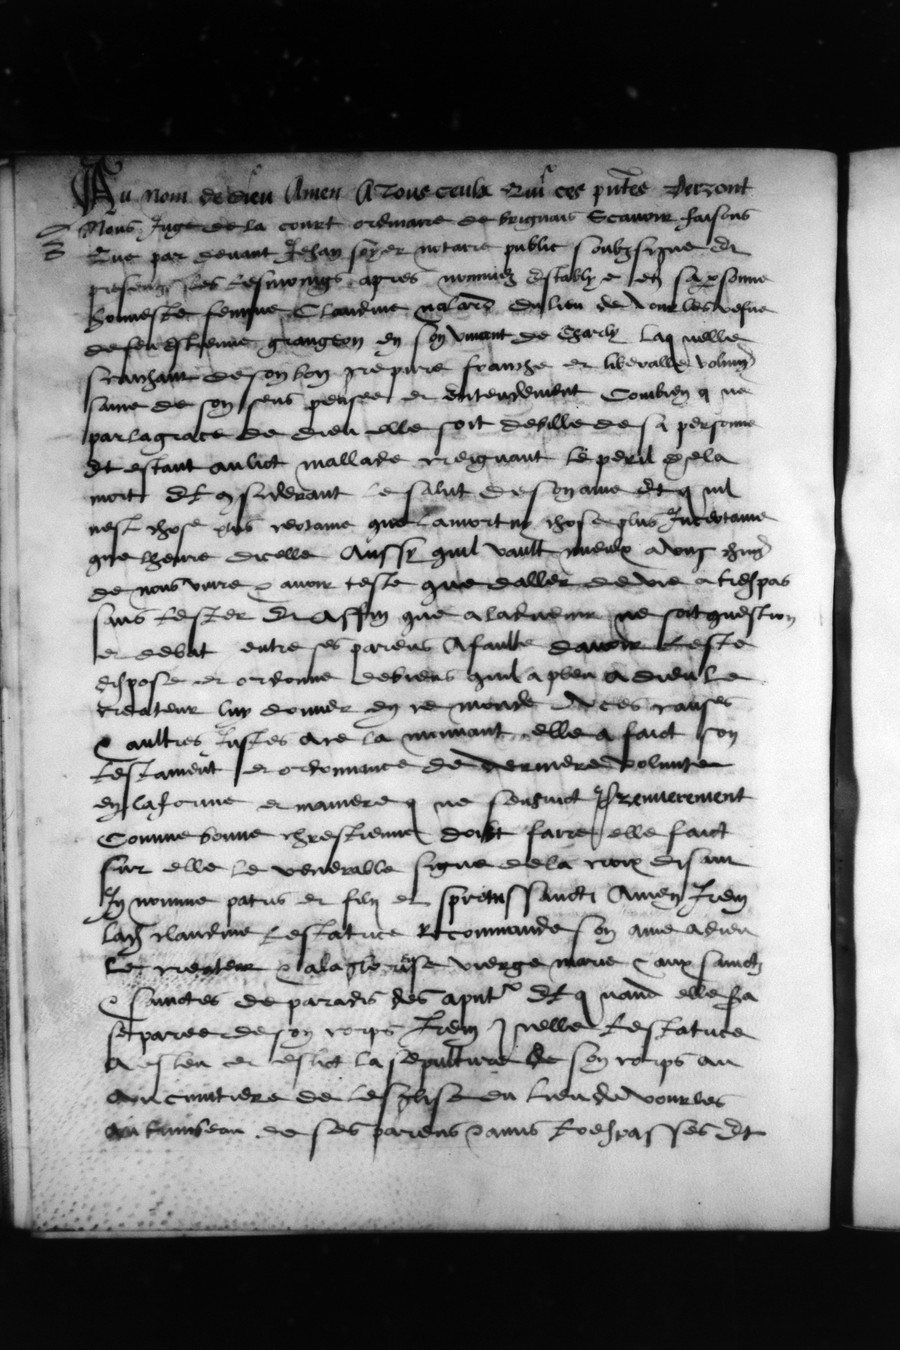 Au nom de dieu Amen A Tous ceulx Qui ces pntes Verront
Nous Juge de la court ordinaire de brignais Scavoir faisons
Que par devant Jehan soyer notaire public soubzsigne et
presens les tesmoings apres nommez establye en sa personne
honneste femme Claudine du lieu de Vourles vefve
de feu Estienne grangeon en son vivant de Charly laquelle
saichant de son bon gre pure franche et liberalle volunte
saine de son sens pensee et entendement Combien que
par la grace de dieu elle soit debille de sa personne
Et estant au lict mallade creignant le peril de la
mort Et considerant le salut de son ame Et quil
nest chose plus certaine que la mort ny chose plus Incertaine
que lheure dicelle Aussy quil vault mieulx a ung chung
de nous vivre & avoir teste que daller de vie a trespas
sans tester Et Affin que a ladvenir ne soit question
et debat entre ses parens A faulte davoir teste
dispose et ordonne de biens quil a pleu a dieu le
createur luy donner en ce monde A ces causes
& aultres Justes a ce la mouvant elle a faict son
testament et ordonnance de derniere volunte
en la forme et maniere que sensuict Premierement
Comme bonne chrestienne doibt faire elle faict
sur elle le venerable signe de la croix disant
In nomine patris et filii et spiritus sancti Amen Item
lad claudine testatrice Recommande son ame a dieu
le createur & a la glorieuse vierge marie & aux sainctz
& sainctes de paradis Et quand elle sera
separee de son corps Item Icelle testatrice
a esleu et eslict la sepulture de son corps au
au cimitiere de lesglise du lieu de vourles
au tumbeau de ses parens & amis trespasses Et